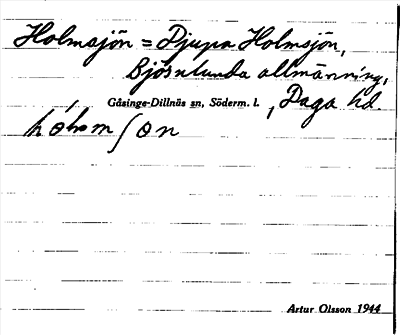 Holmsjön = Djupa Holmsjön,
Björnlunda allmänning,
Gåsinge-Dillnäs sn, Söderm. l. , Daga hd.
Artur Olsson 1944